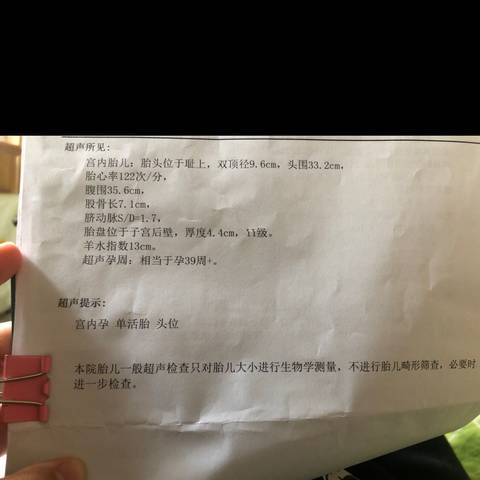 超声所见:
宫内胎儿: 胎头位于耻上, 双顶径9.6cm, 头围33.2cm,
胎心率122次/分,
腹围35.6cm,
股骨长7.1cm,
脐动脉S/D=1.7,
胎盘位于子宫后壁, 厚度4.4cm, 级。
羊水指数13cm。
超声孕周: 相当于孕39周+。
超声提示:
宫内孕 单活胎 头位
本院胎儿一般超声检查只对胎儿大小进行生物学测量, 不进行胎儿畸形筛查, 必要时
进一步检查。